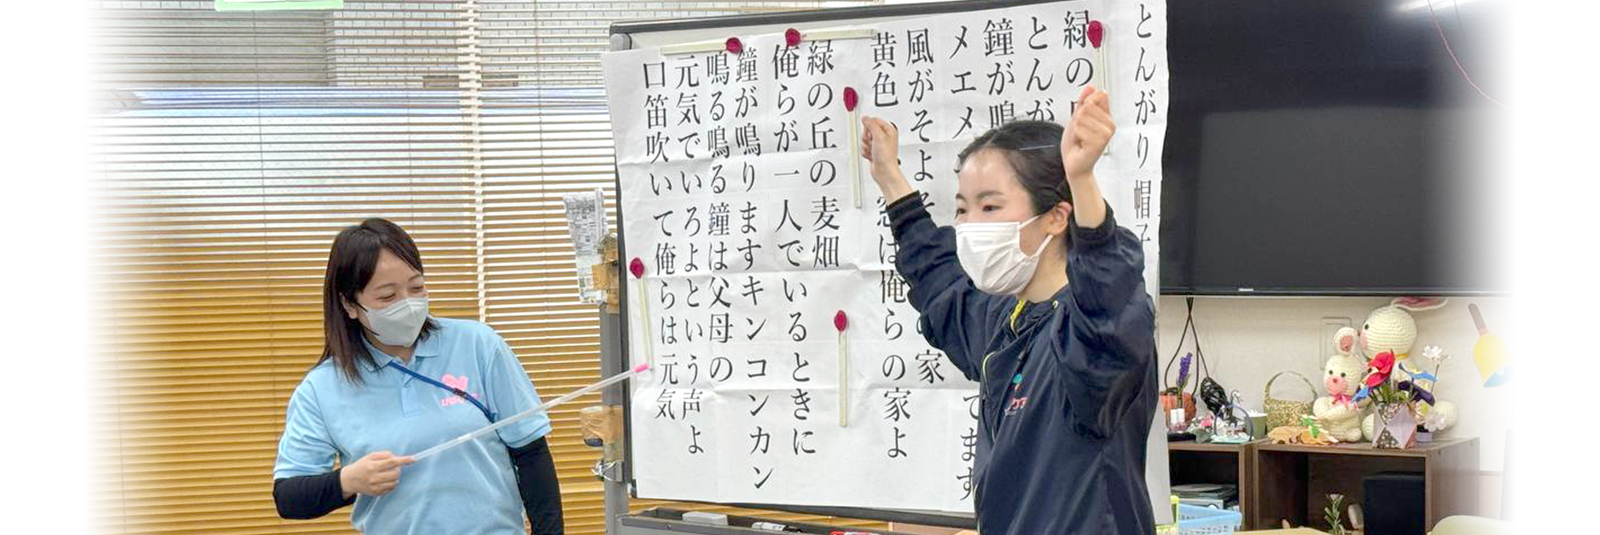 とんがり帽子
緑の
とんが
鐘が鳴
メエメ てます
風がそよそ の家
黄色い 窓は俺らの家よ
緑の丘の麦畑
俺らが一人でいるときに
鐘が鳴りますキンコンカン
鳴る鳴る鐘は父母の
元気でいろよという声よ
口笛吹いて俺らは元気